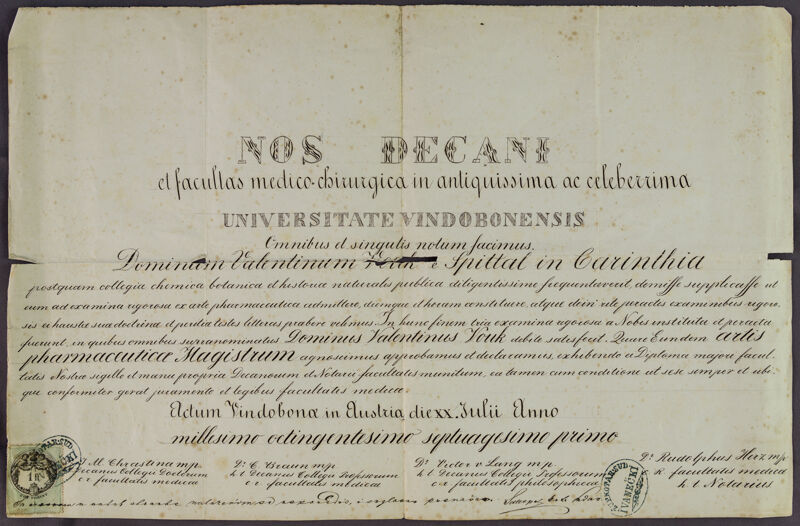 NOS DECANI
et facultas medico-chirurgica in antiquissima ac celeberrima
UNIVERSITATE VINDOBONENSIS
Omnibus et singulis notum facimus.
Dominum Valentinum e Spittal in Carinthia
postquam collegia chemica botanica et historia naturalis publica diligentissime frequentaverit, demisse supplicasse ut
eum ad examina rigorosa ex arte pharmaceutica admittere, diemque et horam constituere, atque dein rite peractis examinibus rigoro-
sis exhausta sua doctrina et peritia testes litteras præbere velimus. In hunc finem tria examina rigorosa a Nobis instituta et peracta
fuerunt, in quibus omnibus supranominatus Dominus Valentinus Vouk debite satisfecit. Quare Eundem artis
pharmaceuticæ Magistrum agnoscimus approbamus et declaramus, exhibendo a Diploma majori facul-
tatis Nostræ sigillo et manu propria Decanorum et Notarii facultatis munitum, ea tamen cum conditione ut sese semper et ubi-
que conformiter gerat juramento et legibus facultatis medicæ.
Actum Vindobonæ in Austria die XX. Julii Anno
millesimo octingentesimo septuagesimo primo
J. M. Chrastina mp.
Decanus Collegii Doctorum
c. r. facultatis medicæ
Dr. C. Braun mp
h. t. Decanus Collegii Professorum
c. r. facultatis medicæ
Dr. Victor v. Lang mp.
h. t. Decanus Collegii Professorum
c. r. facultatis philosophicæ
Dr. Rudolphus Herz mp
c. r. facultatis medicæ
h. t. Notarius
1
IVANECKI